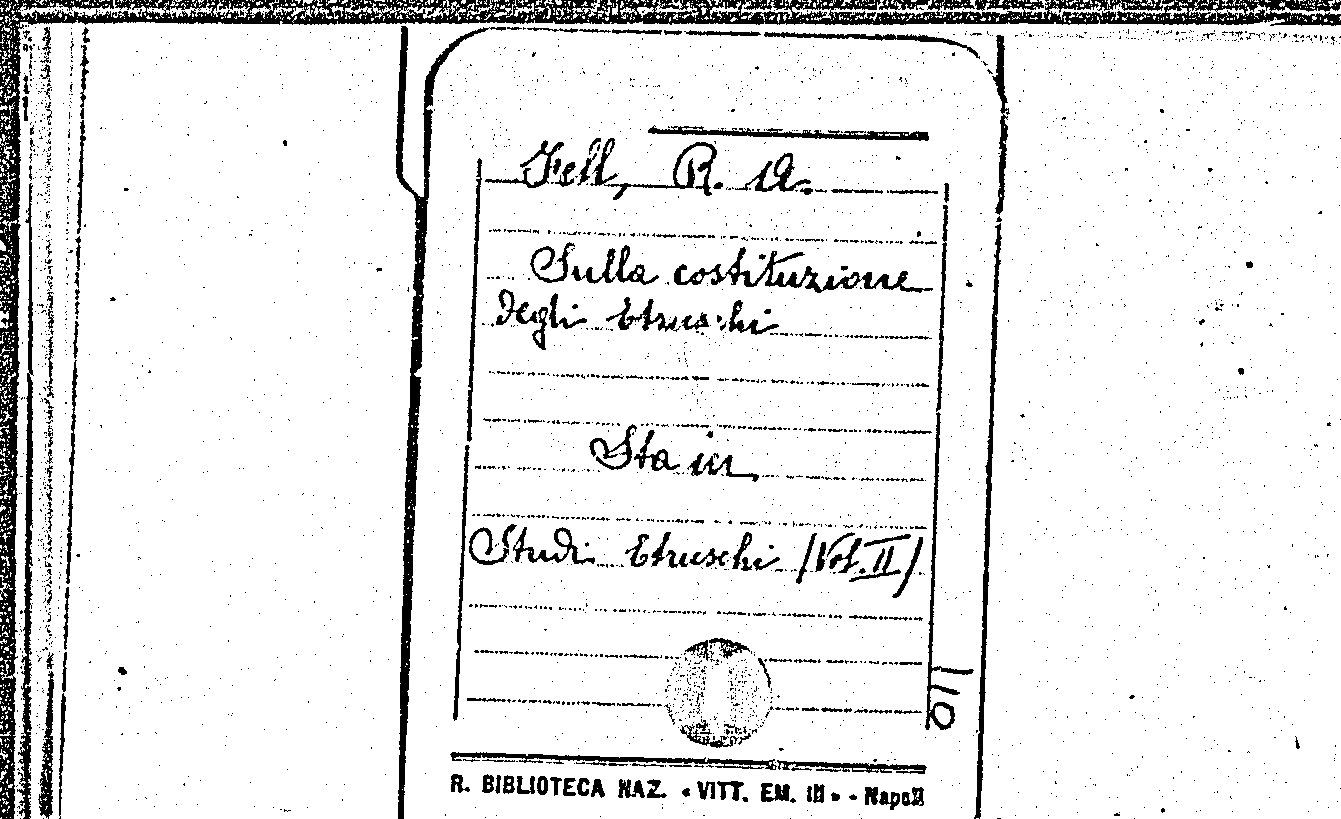 Fell, R. A.
Sulla costituzione
degli Etruschi
Sta in
Studi Etruschi (Vol. II)
110
R. BIBLIOTECA NAZ. « VITT. EM. III » - Napoli